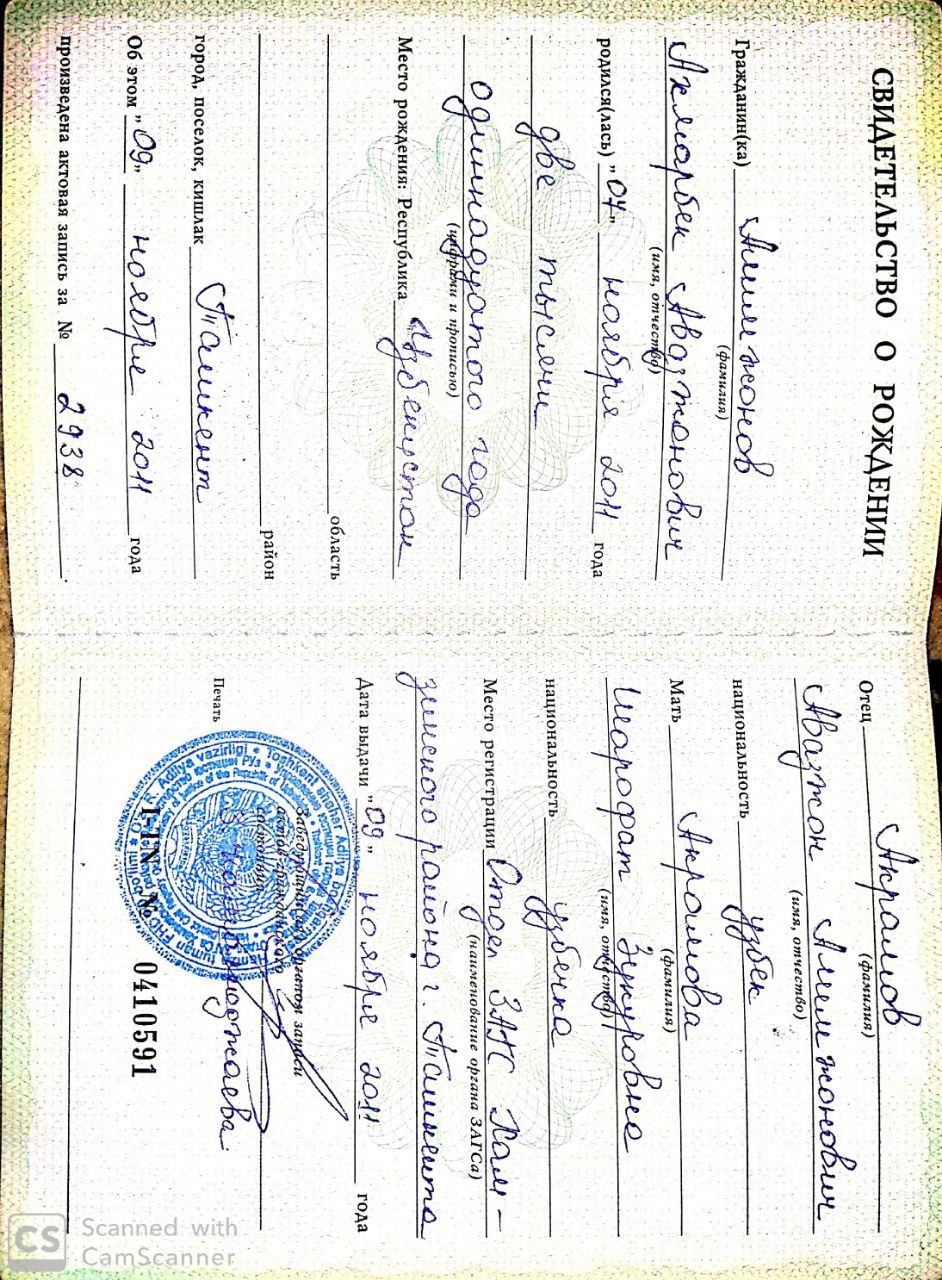 СВИДЕТЕЛЬСТВО О РОЖДЕНИИ
Гражданин(ка) Алимжонов
(фамилия)
Акмарбек Авазжонович
(имя, отчество)
родился(лась) "04" ноября 2011 года
две тысячи
одиннадцатого года
(цифрами и прописью)
Место рождения: Республика Узбекистон
область
район
город, поселок, кишлак Ташкент
Об этом "09" ноября 2011 года
произведена актовая запись за № 2938.
Отец Акрамов
(фамилия)
Авазжон Алимжонович
(имя, отчество)
национальность узбек
Мать Акрамова
(фамилия)
Шарофат Зукуровна
(имя, отчество)
национальность узбечка
Место регистрации Отдел ЗАГС Хам-
(наименование органа ЗАГСа)
зинского района г. Ташкента
Дата выдачи "09" ноября 2011 года
Заведующий органом записи
актов гражданского
состояния
Печать
I-TN № 0410591
CS Scanned with
CamScanner